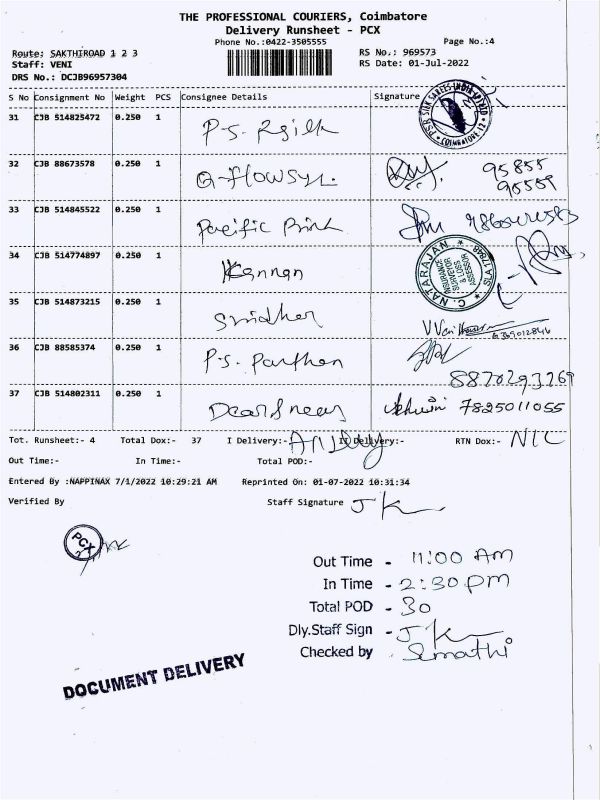 THE PROFESSIONAL COURIERS, Coimbatore
Delivery Runsheet - PCX
Phone No.:0422-3505555 Page No.:4
Route: SAKTHIROAD 1 2 3 RS No.: 969573
Staff: VENI RS Date: 01-Jul-2022
DRS No.: DCJB96957304
S No Consignment No Weight PCS Consignee Details Signature
31 CJB 514825472 0.250 1 P.S.
32 CJB 88673578 0.250 1 95855
33 CJB 514845522 0.250 1 Pacific Print
34 CJB 514774897 0.250 1 Kannan
C. NATARAJAN INSURANCE SURVEYOR & LOSS ASSESSOR
35 CJB 514873215 0.250 1 Sridher
36 CJB 88585374 0.250 1 P.S. Parthen
8870293269
37 CJB 514802311 0.250 1 7825011055
Tot. Runsheet:- 4 Total Dox:- 37 I Delivery:- II Delivery:- RTN Dox:- NIL
Out Time:- In Time:- Total POD:-
Entered By :NAPPINAX 7/1/2022 10:29:21 AM Reprinted On: 01-07-2022 10:31:34
Verified By Staff Signature JK
PCX
Out Time - 11:00 Am
In Time - 2:30 pm
Total POD - 30
Dly.Staff Sign - JK
Checked by -
DOCUMENT DELIVERY